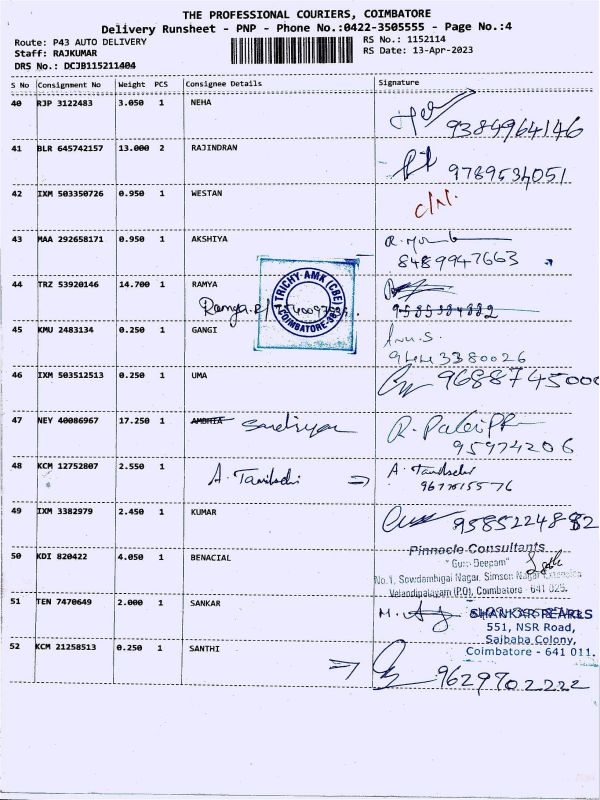 THE PROFESSIONAL COURIERS, COIMBATORE
Delivery Runsheet - PNP - Phone No.:0422-3505555 - Page No.:4
Route: P43 AUTO DELIVERY RS No.: 1152114
Staff: RAJKUMAR RS Date: 13-Apr-2023
DRS No.: DCJB115211404
S No Consignment No Weight PCS Consignee Details Signature
40 RJP 3122483 3.050 1 NEHA
9384964146
41 BLR 645742157 13.000 2 RAJINDRAN
9789534051
42 IXM 503350726 0.950 1 WESTAN
C/N.
43 MAA 292658171 0.950 1 AKSHIYA
8489947663
44 TRZ 53920146 14.700 1 RAMYA
TRICHY-AMK (CBE) COIMBATORE
Ramya.R 9585384882
45 KMU 2483134 0.250 1 GANGI Anu.S
9443380026
46 IXM 503512513 0.250 1 UMA 968874500
47 NEY 40086967 17.250 1 AMBHIA
95974206
48 KCM 12752807 2.550 1 A.
49 IXM 3382979 2.450 1 KUMAR 9585224892
Pinnacle Consultants
50 KDI 820422 4.050 1 BENACIAL "Gum Deepam"
No.1, Sowdamhigai Nagar, Simson Nagar Extension
Velandipalayam (P.O), Coimbatore - 641 025.
51 TEN 7470649 2.000 1 SANKAR M. SHANKAR PEARLS
551, NSR Road,
Saibaba Colony,
52 KCM 21258513 0.250 1 SANTHI Coimbatore - 641 011.
9629702222